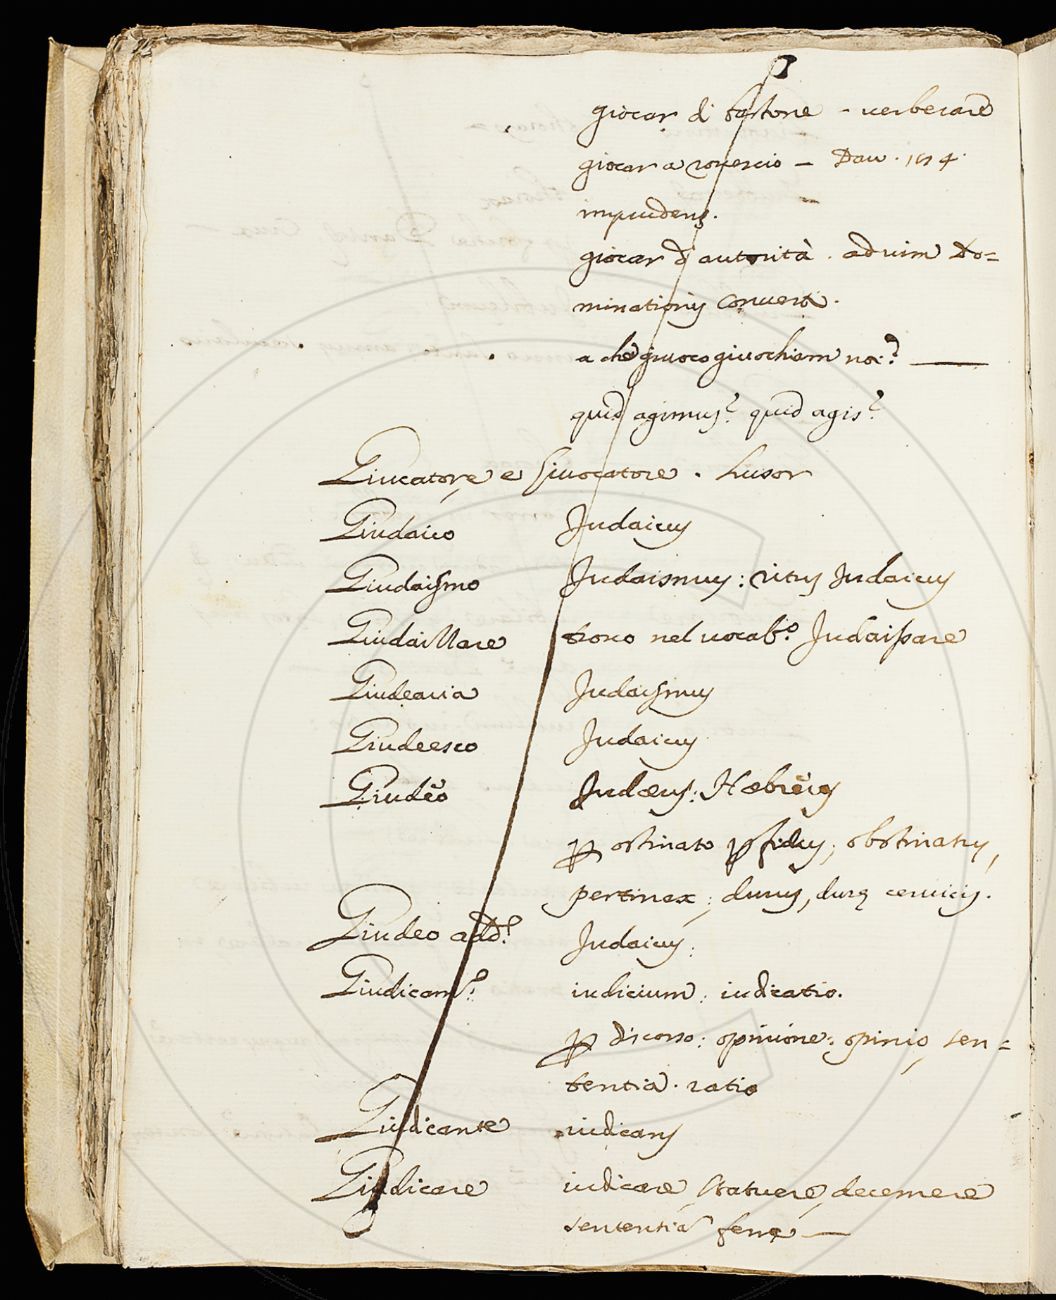 giocar di bastone - verberare
giocar a rovescio - Dav. 1674.
imprudens.
giocar d'autorità. ad vim Do=
minationis convertere.
a che giuoco giuochiam noi? ___
quid agimus? quid agis?
Giucatore e Giuocatore. Lusor
Giudaico Judaicus
Giudaismo Judaismus: ritus Judaicus
Giudaizzare trovo nel vocab.o Judaissare
Giudearia Judaismus
Giudeesco Judaicus
Giudèo Judæus: Hæbreus
p ostinato pfidus, obstinatus,
pertinax; durus, duræ cervicis.
Giudeo add.o Judaicus:
Giudicam.o iudicium: iudicatio.
p discorso: opinione: opinio, sen=
tentia. ratio
Giudicante iudicans
Giudicare iudicare, statuere, decernere
sententiã ferre ___